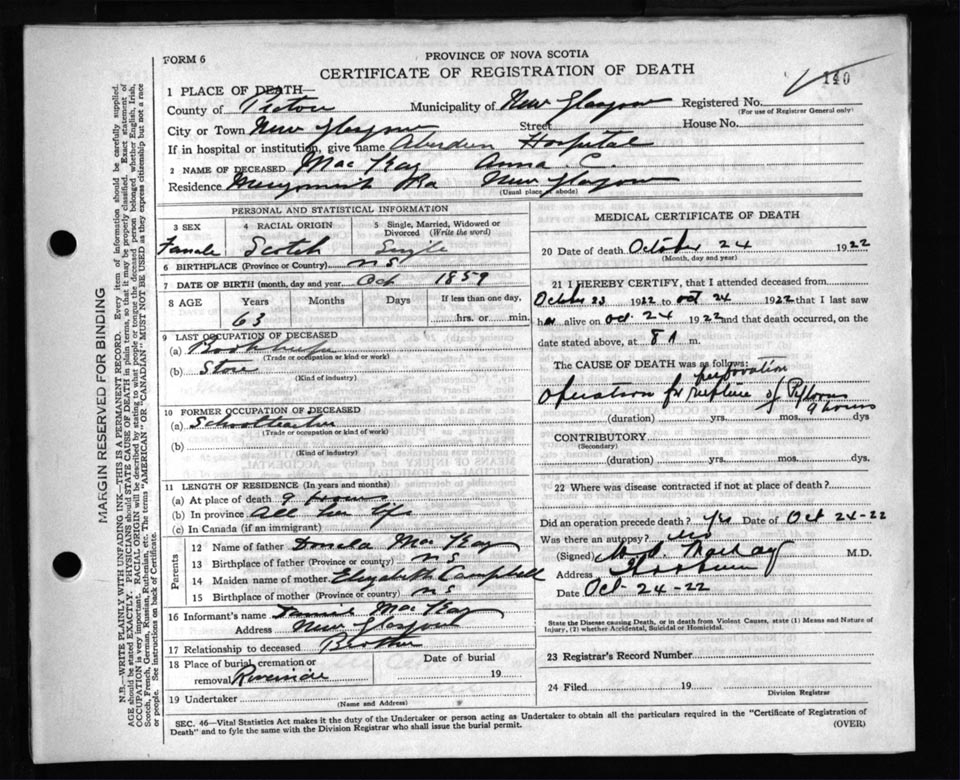 PROVINCE OF NOVA SCOTIA
FORM 6
CERTIFICATE OF REGISTRATION OF DEATH
140
1 PLACE OF DEATH—
County of Pictou Municipality of New Glasgow Registered No.
(For use of Registrar General only)
City or Town New Glasgow Street House No.
If in hospital or institution, give name Aberdeen Hospital
2 NAME OF DECEASED MacKay Anna C.
Residence Merigomish Rd New Glasgow
(Usual place of abode)
PERSONAL AND STATISTICAL INFORMATION
3 SEX 4 RACIAL ORIGIN 5 Single, Married, Widowed or Divorced (Write the word)
Female Scotch Single
6 BIRTHPLACE (Province or Country) NS
7 DATE OF BIRTH (month, day and year) Oct 1859
8 AGE Years Months Days If less than one day,
63 hrs. or min.
9 LAST OCCUPATION OF DECEASED
(a) Bookkeeper
(Trade or occupation or kind of work)
(b) Store
(Kind of industry)
10 FORMER OCCUPATION OF DECEASED
(a) Schoolteacher
(Trade or occupation or kind of work)
(b)
(Kind of industry)
11 LENGTH OF RESIDENCE (In years and months)
(a) At place of death 9 hours
(b) In province All her life
(c) In Canada (if an immigrant)
Parents
12 Name of father Donald MacKay
13 Birthplace of father (Province or country) NS
14 Maiden name of mother Elizabeth Campbell
15 Birthplace of mother (Province or country) NS
16 Informant's name MacKay
Address New Glasgow
17 Relationship to deceased Brother
18 Place of burial, cremation or Date of burial
removal Riverside 19
19 Undertaker
(Name and Address)
MEDICAL CERTIFICATE OF DEATH
20 Date of death October 24 1922
(Month, day and year)
21 I HEREBY CERTIFY, that I attended deceased from
October 23 1922 to Oct 24 1922 that I last saw
her alive on Oct. 24 1922 and that death occurred, on
date stated above, at 8 A m.
The CAUSE OF DEATH was as follows:
perforation
Operation for rupture of
9 hours
(duration) yrs. mos. dys.
CONTRIBUTORY
(Secondary)
(duration) yrs. mos. dys.
22 Where was disease contracted if not at place of death?
Did an operation precede death? Yes Date of Oct 24-22
Was there an autopsy? No
(Signed) MacKay M.D.
Address
Date Oct-24-22
State the Disease causing Death, or in death from Violent Causes, state (1) Means and Nature of
Injury, (2) whether Accidental, Suicidal or Homicidal.
23 Registrar's Record Number
24 Filed 19
Division Registrar
SEC. 46—Vital Statistics Act makes it the duty of the Undertaker or person acting as Undertaker to obtain all the particulars required in the "Certificate of Registration of
Death" and to fyle the same with the Division Registrar who shall issue the burial permit. (OVER)
MARGIN RESERVED FOR BINDING
N.B.—WRITE PLAINLY WITH UNFADING INK—THIS IS A PERMANENT RECORD. Every item of information should be carefully supplied.
AGE should be stated EXACTLY. PHYSICIANS should STATE CAUSE OF DEATH in plain terms, so that it may be properly classified. Exact statement of
OCCUPATION is very important. RACIAL ORIGIN will be described by stating to what people or tongue the deceased person belonged whether English, Irish,
Scotch, French, German, Russian, Ruthenian, etc. The terms "AMERICAN" OR "CANADIAN" MUST NOT BE USED as they express citizenship but not a race
or people. See instructions on back of Certificate.